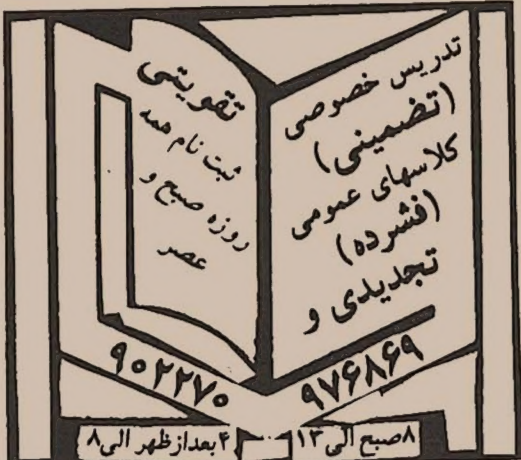 تدریس خصوصی
(تضمینی)
کلاسهای عمومی
(فشرده)
تجدیدی و
تقویتی
ثبت نام همه
روزه صبح و
عصر
۹۷۶۸۶۹
۹۰۲۲۷۰
۸صبح الی ۱۳
۴بعدازظهر الی۸